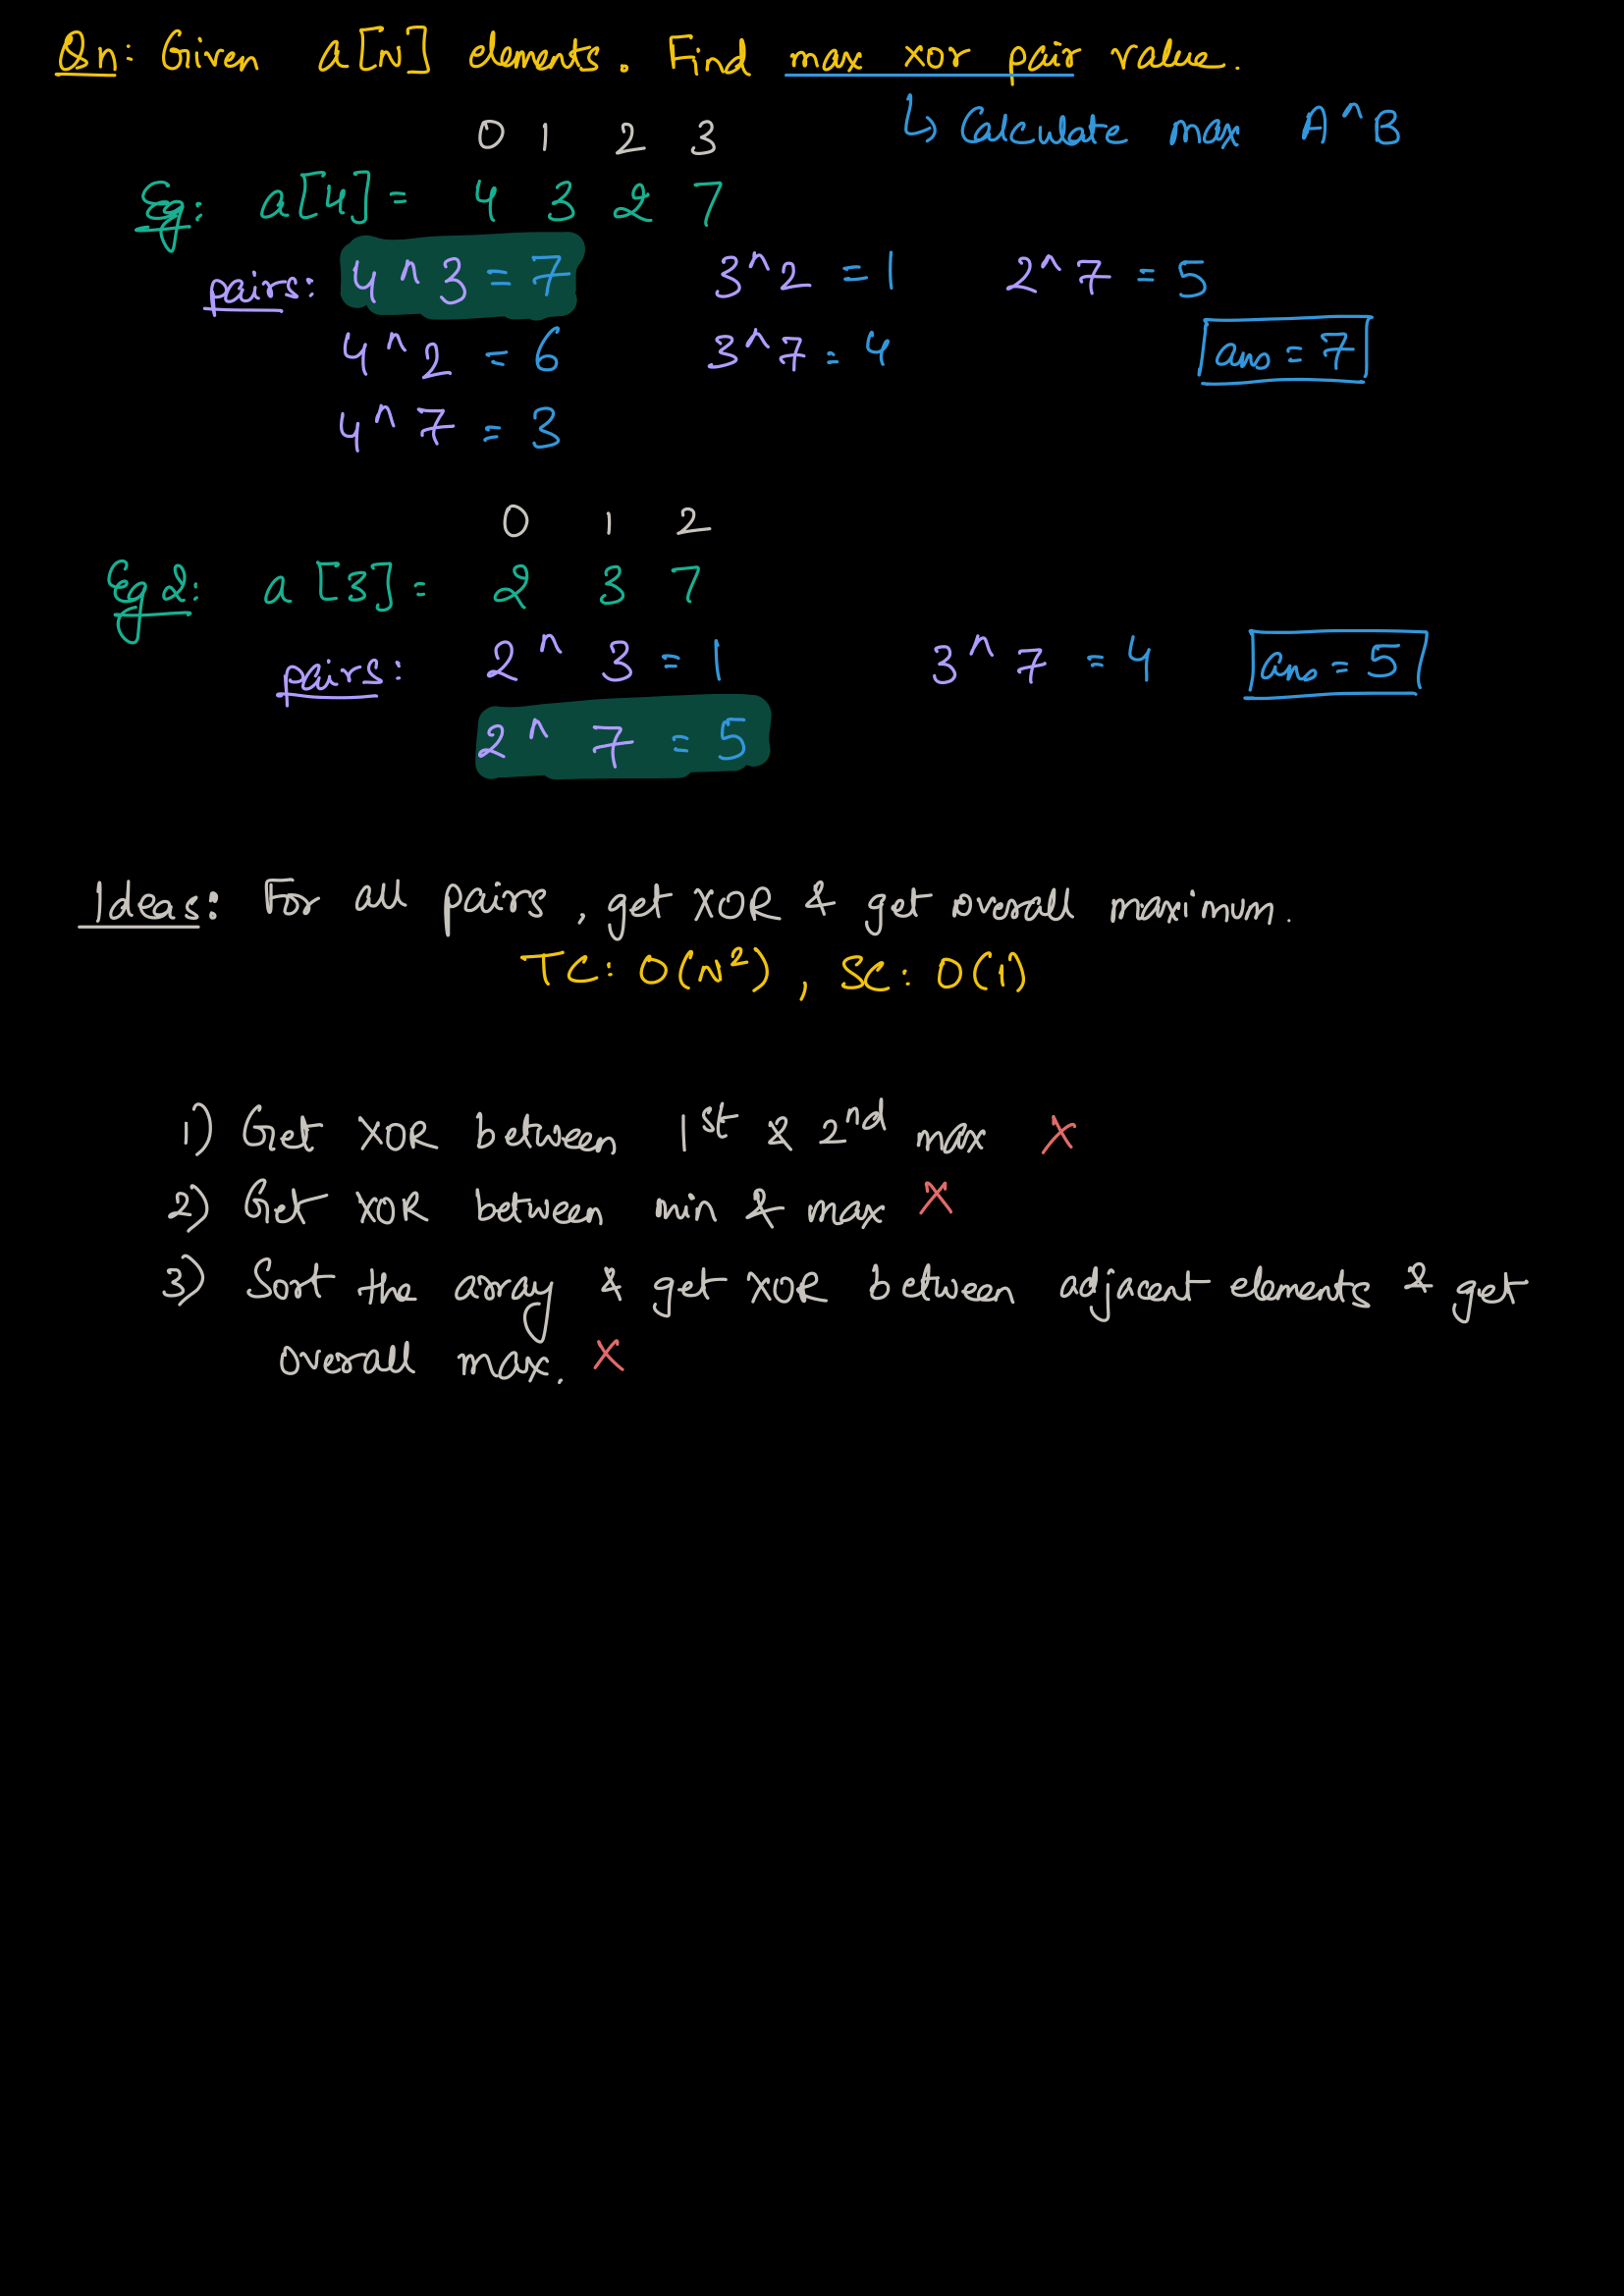 Qn: Given a[N] elements. Find max xor pair value.
↳ Calculate max A^B
0 1 2 3
Eg: a[4] = 4 3 2 7
pairs: 4 ^ 3 = 7 3^2 = 1 2^7 = 5
4 ^ 2 = 6 3^7 = 4 ans = 7
4 ^ 7 = 3
0 1 2
Eg 2: a [3] = 2 3 7
pairs: 2 ^ 3 = 1 3 ^ 7 = 4 ans = 5
2 ^ 7 = 5
Ideas: For all pairs, get XOR & get overall maximum.
TC: O(N²), SC: O(1)
1) Get XOR between 1st & 2nd max X
2) Get XOR between min & max X
3) Sort the array & get XOR between adjacent elements & get
overall max. X